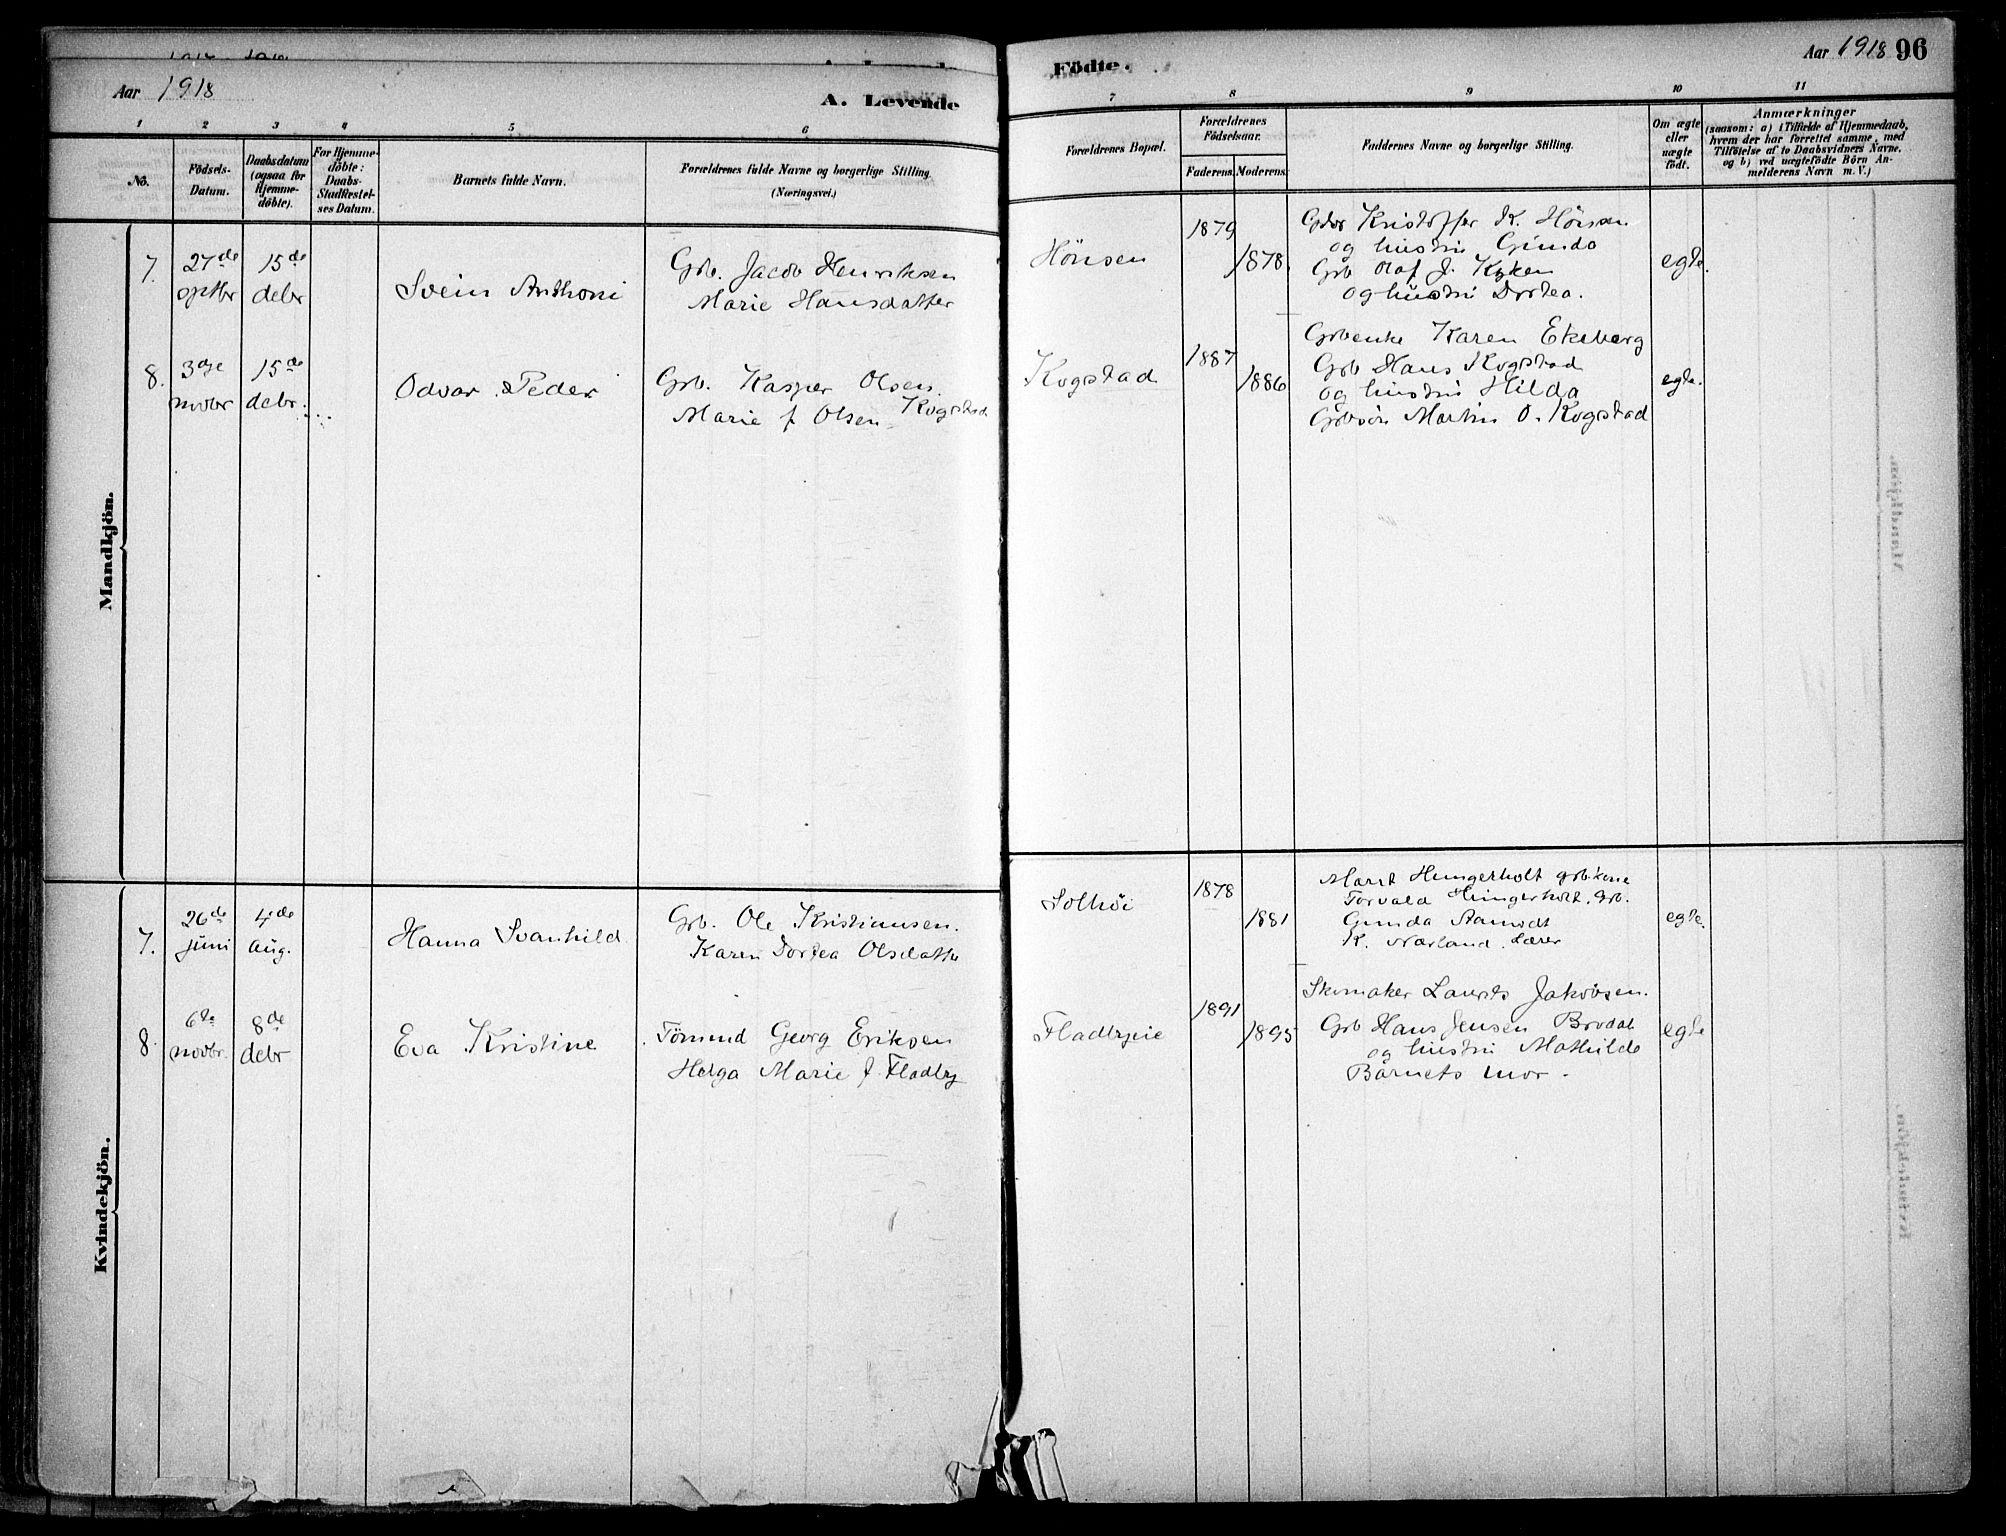 Aar 1918
A. Levende
Födte.
Aar 1918 96
1 2 3 4 5 6 7 8 9 10 11
No.
Födsels-
Datum.
Daabsdatum
(ogsaa for
Hjemme-
döbte).
For Hjemme-
döbte:
Daabs-
Stadfæstel-
ses Datum.
Barnets fulde Navn.
Forældrenes fulde Navne og borgerlige Stilling
(Næringsvei.)
Forældrenes Bopæl.
Forældrenes
Födselsaar.
Faderens. Moderens.
Faddernes Navne og borgerlige Stilling.
Om ægte
eller
uægte
födt.
Anmærkninger
(saasom: a) i Tilfælde af Hjemmedaab,
hvem der har forrettet samme, med
Tilföielse af to Daabsvidners Navne,
og b) ved uægtefödte Börn An-
melderens Navn m. V.)
Mandkjön.
7.
27de
15de
debr
Svein Anthoni
Grb. Jacob Henriksen
Marie Hansdatter
Hönsen
1879
1878.
Kristoffer K. Hönsen
og hustru Gunda
Grb Olaf J.
og hustru Dortea.
egte.
8.
3dje
novbr
15de
debr.
Odvar Peder
Grb. Kasper Olsen
Marie f Olsen Kogstad
Kogstad
1887
1886
Grbenke Karen Ekeberg
Grb Hans Kogstad
og hustru Hilda
Grbsön Martin O. Kogstad
egte.
Kvindekjön.
7.
26de
juni
4de
aug.
Hanna Svanhild
Grb. Ole Kristiansen.
Karen Dortea Olsdatter
Solhöi
1878
1881
Marit Hungerholt grb'kone
Torvald Hungerholt. Grb.
Gunda Aamodt
K. Nærland. Lærer
egte.
8.
6te
novbr.
8de
debr
Eva Kristine
Tömmd Georg Eriksen
Helga Marie f. Fladby
Fladbyeie
1891
1895
Skomaker Laurits Jakobsen.
Grb Hans Jensen Brodal
og hustru Mathilde
Barnets mor.
egte